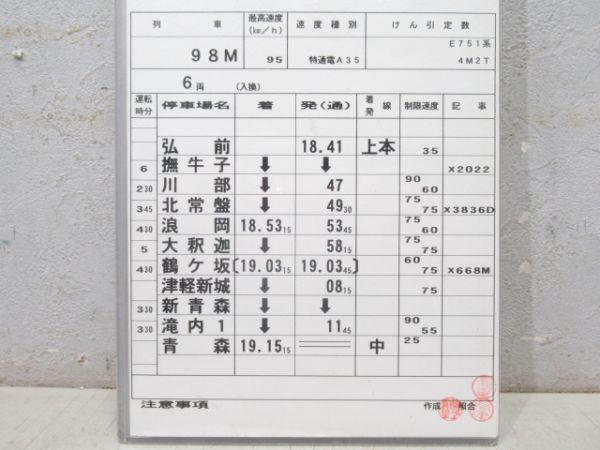 列 車 最高速度(km/h) 速度種別 けん引定数
98M 95 特通電A35 E751系 4M2T
6両 (入換)
運転時分 停車場名 着 発(通) 着発線 制限速度 記事
弘前 18.41 上本 35
6 撫牛子 ↓ ↓ X2022
2 30 川部 ↓ 47 90 60
3 45 北常盤 ↓ 49 30 75 75 X3836D
4 30 浪岡 18.53 15 53 45 75 60
5 大釈迦 ↓ 58 15 75 75
4 30 鶴ケ坂 〔19.03 15 19.03 45〕 60 75 X668M
津軽新城 ↓ 08 15 75
3 30 新青森 ↓ ↓
3 30 滝内1 ↓ 11 45 90 55
青森 19.15 15 中 25
注意事項 作成 組合